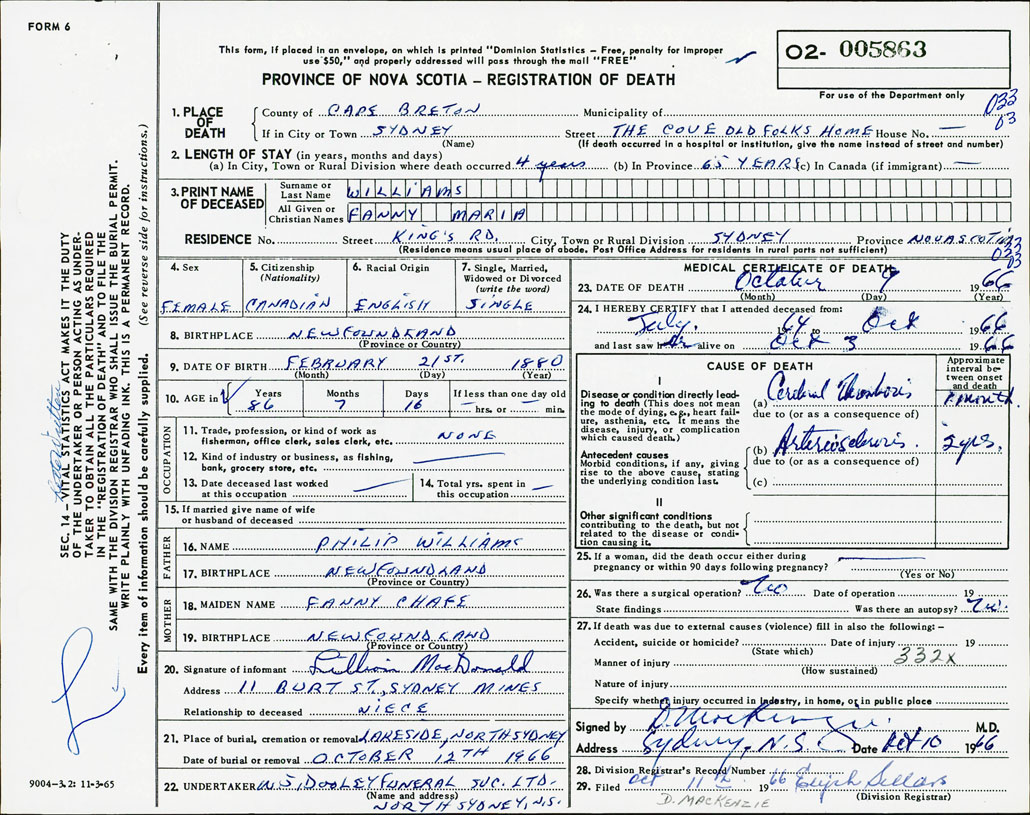 FORM 6
This form, if placed in an envelope, on which is printed "Dominion Statistics – Free, penalty for improper
use $50," and properly addressed will pass through the mail "FREE"
PROVINCE OF NOVA SCOTIA – REGISTRATION OF DEATH
02- 005863
For use of the Department only
033
03
1. PLACE OF DEATH
County of CAPE BRETON Municipality of
If in City or Town SYDNEY Street THE COVE OLD FOLKS HOME House No. —
(Name) (If death occurred in a hospital or institution, give the name instead of street and number)
2. LENGTH OF STAY (in years, months and days)
(a) In City, Town or Rural Division where death occurred 4 years (b) In Province 65 YEARS (c) In Canada (if immigrant) —
3. PRINT NAME OF DECEASED
Surname or Last Name WILLIAMS
All Given or Christian Names FANNY MARIA
RESIDENCE No. Street KING'S RD. City, Town or Rural Division SYDNEY Province NOVA SCOTIA
(Residence means usual place of abode. Post Office Address for residents in rural parts not sufficient)
033
03
4. Sex
FEMALE
5. Citizenship (Nationality)
CANADIAN
6. Racial Origin
ENGLISH
7. Single, Married, Widowed or Divorced (write the word)
SINGLE
8. BIRTHPLACE NEWFOUNDLAND
(Province or Country)
9. DATE OF BIRTH FEBRUARY 21ST. 1880
(Month) (Day) (Year)
10. AGE in Years Months Days If less than one day old
86 7 16 — hrs. or — min.
OCCUPATION
11. Trade, profession, or kind of work as
fisherman, office clerk, sales clerk, etc. NONE
12. Kind of industry or business, as fishing,
bank, grocery store, etc.
13. Date deceased last worked
at this occupation
14. Total yrs. spent in
this occupation —
15. If married give name of wife
or husband of deceased
FATHER
16. NAME PHILIP WILLIAMS
17. BIRTHPLACE NEWFOUNDLAND
(Province or Country)
MOTHER
18. MAIDEN NAME FANNY CHAFE
19. BIRTHPLACE NEWFOUNDLAND
(Province or Country)
20. Signature of informant Lillian MacDonald
Address 11 BURT ST., SYDNEY MINES
Relationship to deceased NIECE
21. Place of burial, cremation or removal LAKESIDE, NORTH SYDNEY
Date of burial or removal OCTOBER 12TH 1966
22. UNDERTAKER W.J. DOOLEY FUNERAL SUC. LTD.
(Name and address)
NORTH SYDNEY, N.S.
MEDICAL CERTIFICATE OF DEATH
23. DATE OF DEATH October 9 1966
(Month) (Day) (Year)
24. I HEREBY CERTIFY that I attended deceased from:
July. 1964 to Oct 1966
and last saw her alive on Oct 3 1966
CAUSE OF DEATH
Approximate interval between onset and death
I
Disease or condition directly leading to death (This does not mean the mode of dying, e.g., heart failure, asthenia, etc. It means the disease, injury, or complication which caused death.)
(a) Cerebral Thrombosis 1 month.
due to (or as a consequence of)
Antecedent causes
Morbid conditions, if any, giving rise to the above cause, stating the underlying condition last.
(b) Arteriosclerosis. 2 yrs.
due to (or as a consequence of)
(c)
II
Other significant conditions contributing to the death, but not related to the disease or condition causing it.
25. If a woman, did the death occur either during
pregnancy or within 90 days following pregnancy?
(Yes or No)
26. Was there a surgical operation? No Date of operation 19
State findings Was there an autopsy? No.
27. If death was due to external causes (violence) fill in also the following: –
Accident, suicide or homicide? Date of injury 19
(State which)
Manner of injury 332X
(How sustained)
Nature of injury
Specify whether injury occurred in Industry, in home, or in public place
Signed by D. MacKenzie. M.D.
Address Sydney, N.S. Date Oct 10 1966
28. Division Registrar's Record Number
29. Filed Oct 11th 1966 Elijah Sellars
(Division Registrar)
D. MACKENZIE
SEC. 14 – VITAL STATISTICS ACT MAKES IT THE DUTY
OF THE UNDERTAKER OR PERSON ACTING AS UNDER-
TAKER TO OBTAIN ALL THE PARTICULARS REQUIRED
IN THE "REGISTRATION OF DEATH" AND TO FILE THE
SAME WITH THE DIVISION REGISTRAR WHO SHALL ISSUE THE BURIAL PERMIT.
WRITE PLAINLY WITH UNFADING INK. THIS IS A PERMANENT RECORD.
Every item of information should be carefully supplied. (See reverse side for instructions.)
9004–3.2: 11-3-65